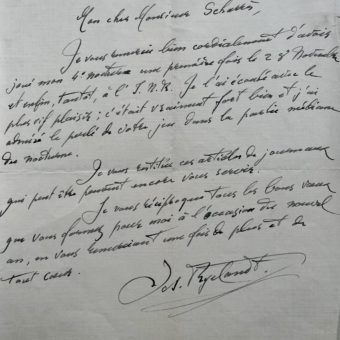 Mon cher Monsieur Scharrès,
Je vous remercie bien cordialement d'avoir
joué mon 4e nocturne une première fois le 28 Novembre
et enfin, tantôt, à l'I.N.R. Je l'ai écouté avec le
plus vif plaisir; c'était vraiment fort bien et j'ai
admiré le perlé de votre jeu dans la partie médiane
du nocturne.
Je vous restitue ces articles de journaux
qui peut être peuvent encore vous servir.
Je vous réciproque tous les bons vœux
que vous formez pour moi à l'occasion du nouvel
an, en vous remerciant une fois de plus et de
tout cœur.
Jos. Ryelandt.